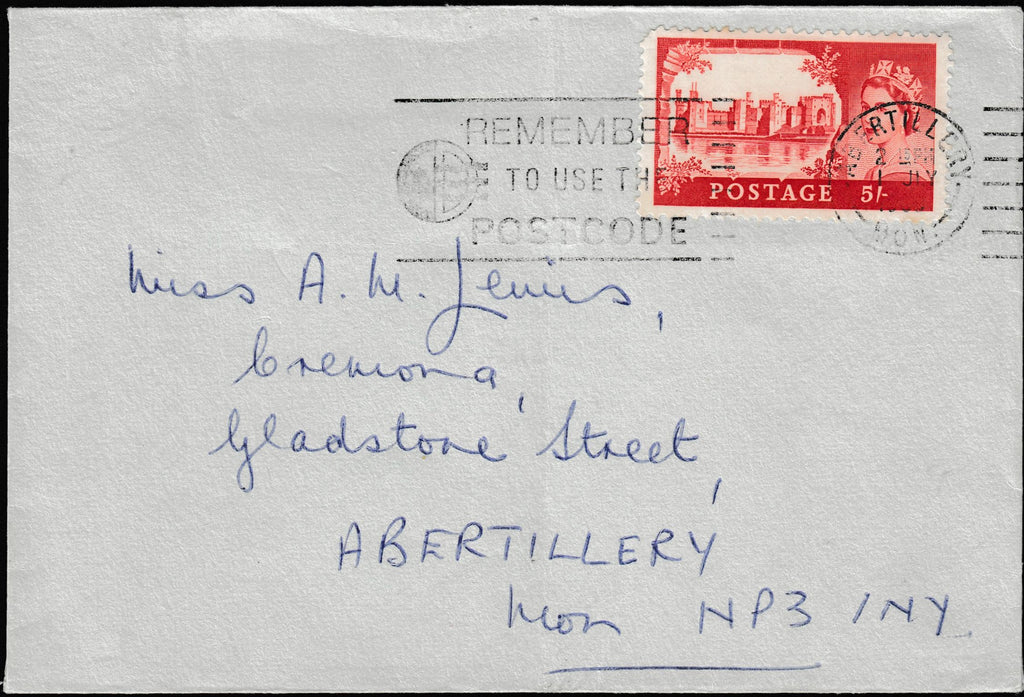 REMEMBER
TO USE THE
POSTCODE
POSTAGE 5/-
ABERTILLERY
1 JLY
MON.
Miss A. M. Lewis,
Cremona,
Gladstone Street,
ABERTILLERY
Mon NP3 1NY